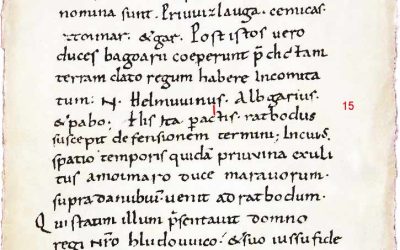 nomina sunt. Priuuizlauga. cemicas.
Ztoimar. & gar. Post istos uero
duces bagoarii coeperunt p̄dictam
terram dato regum habere Incomita
tum; N̄. Helmuuinus. Albgarius.
& pabo; His Ita peractis. ratbodus 15
suscepit defensionem termini; Incuius
spatio temporis quidā priuuina exuli
tus amoimaro duce marauorum.
supra danubium uenit ad ratbodum.
Qui statim illum p̄sentauit domno
regi nr̄o hludouuico. & suo iussu fide